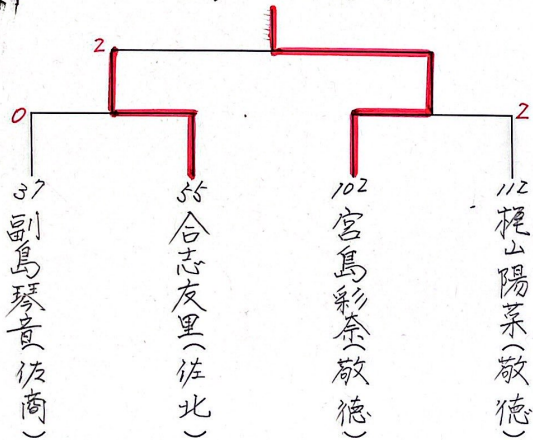 2
0
2
37
副島琴音(佐商)
55
合志友里(佐北)
102
宮島彩奈(敬徳)
112
梶山陽菜(敬徳)